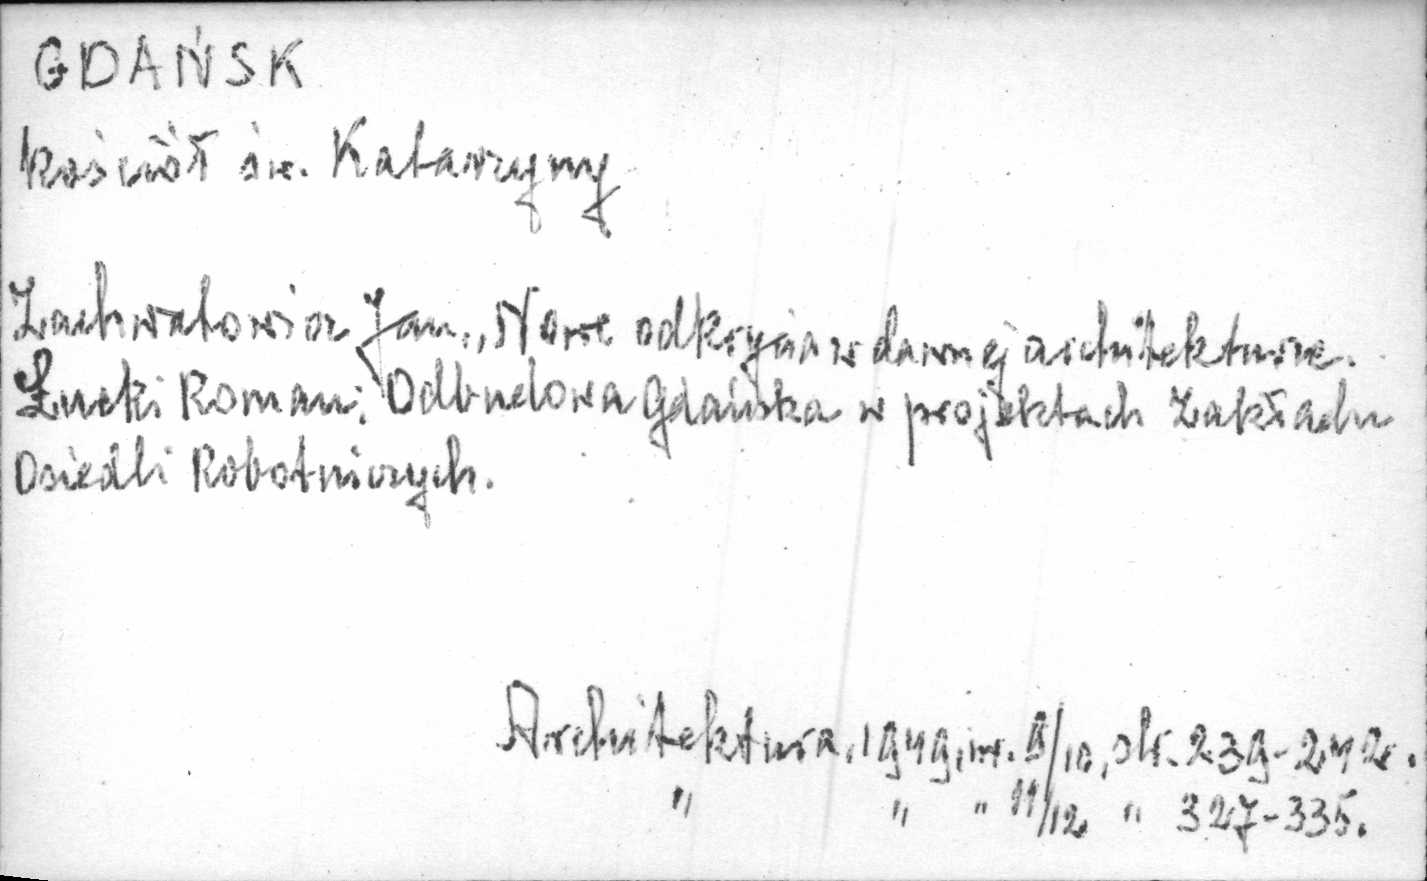 GDAŃSK
Kościół św. Katarzyny
Zachwatowicz Jan. „Nowe odkrycia w dawnej architekturze.
Łucki Roman: Odbudowa Gdańska w projektach Zakładu
Osiedli Robotniczych.
Architektura, 1949, nr. 9/10, str. 239-242.
" " " 11/12 " 327-335.